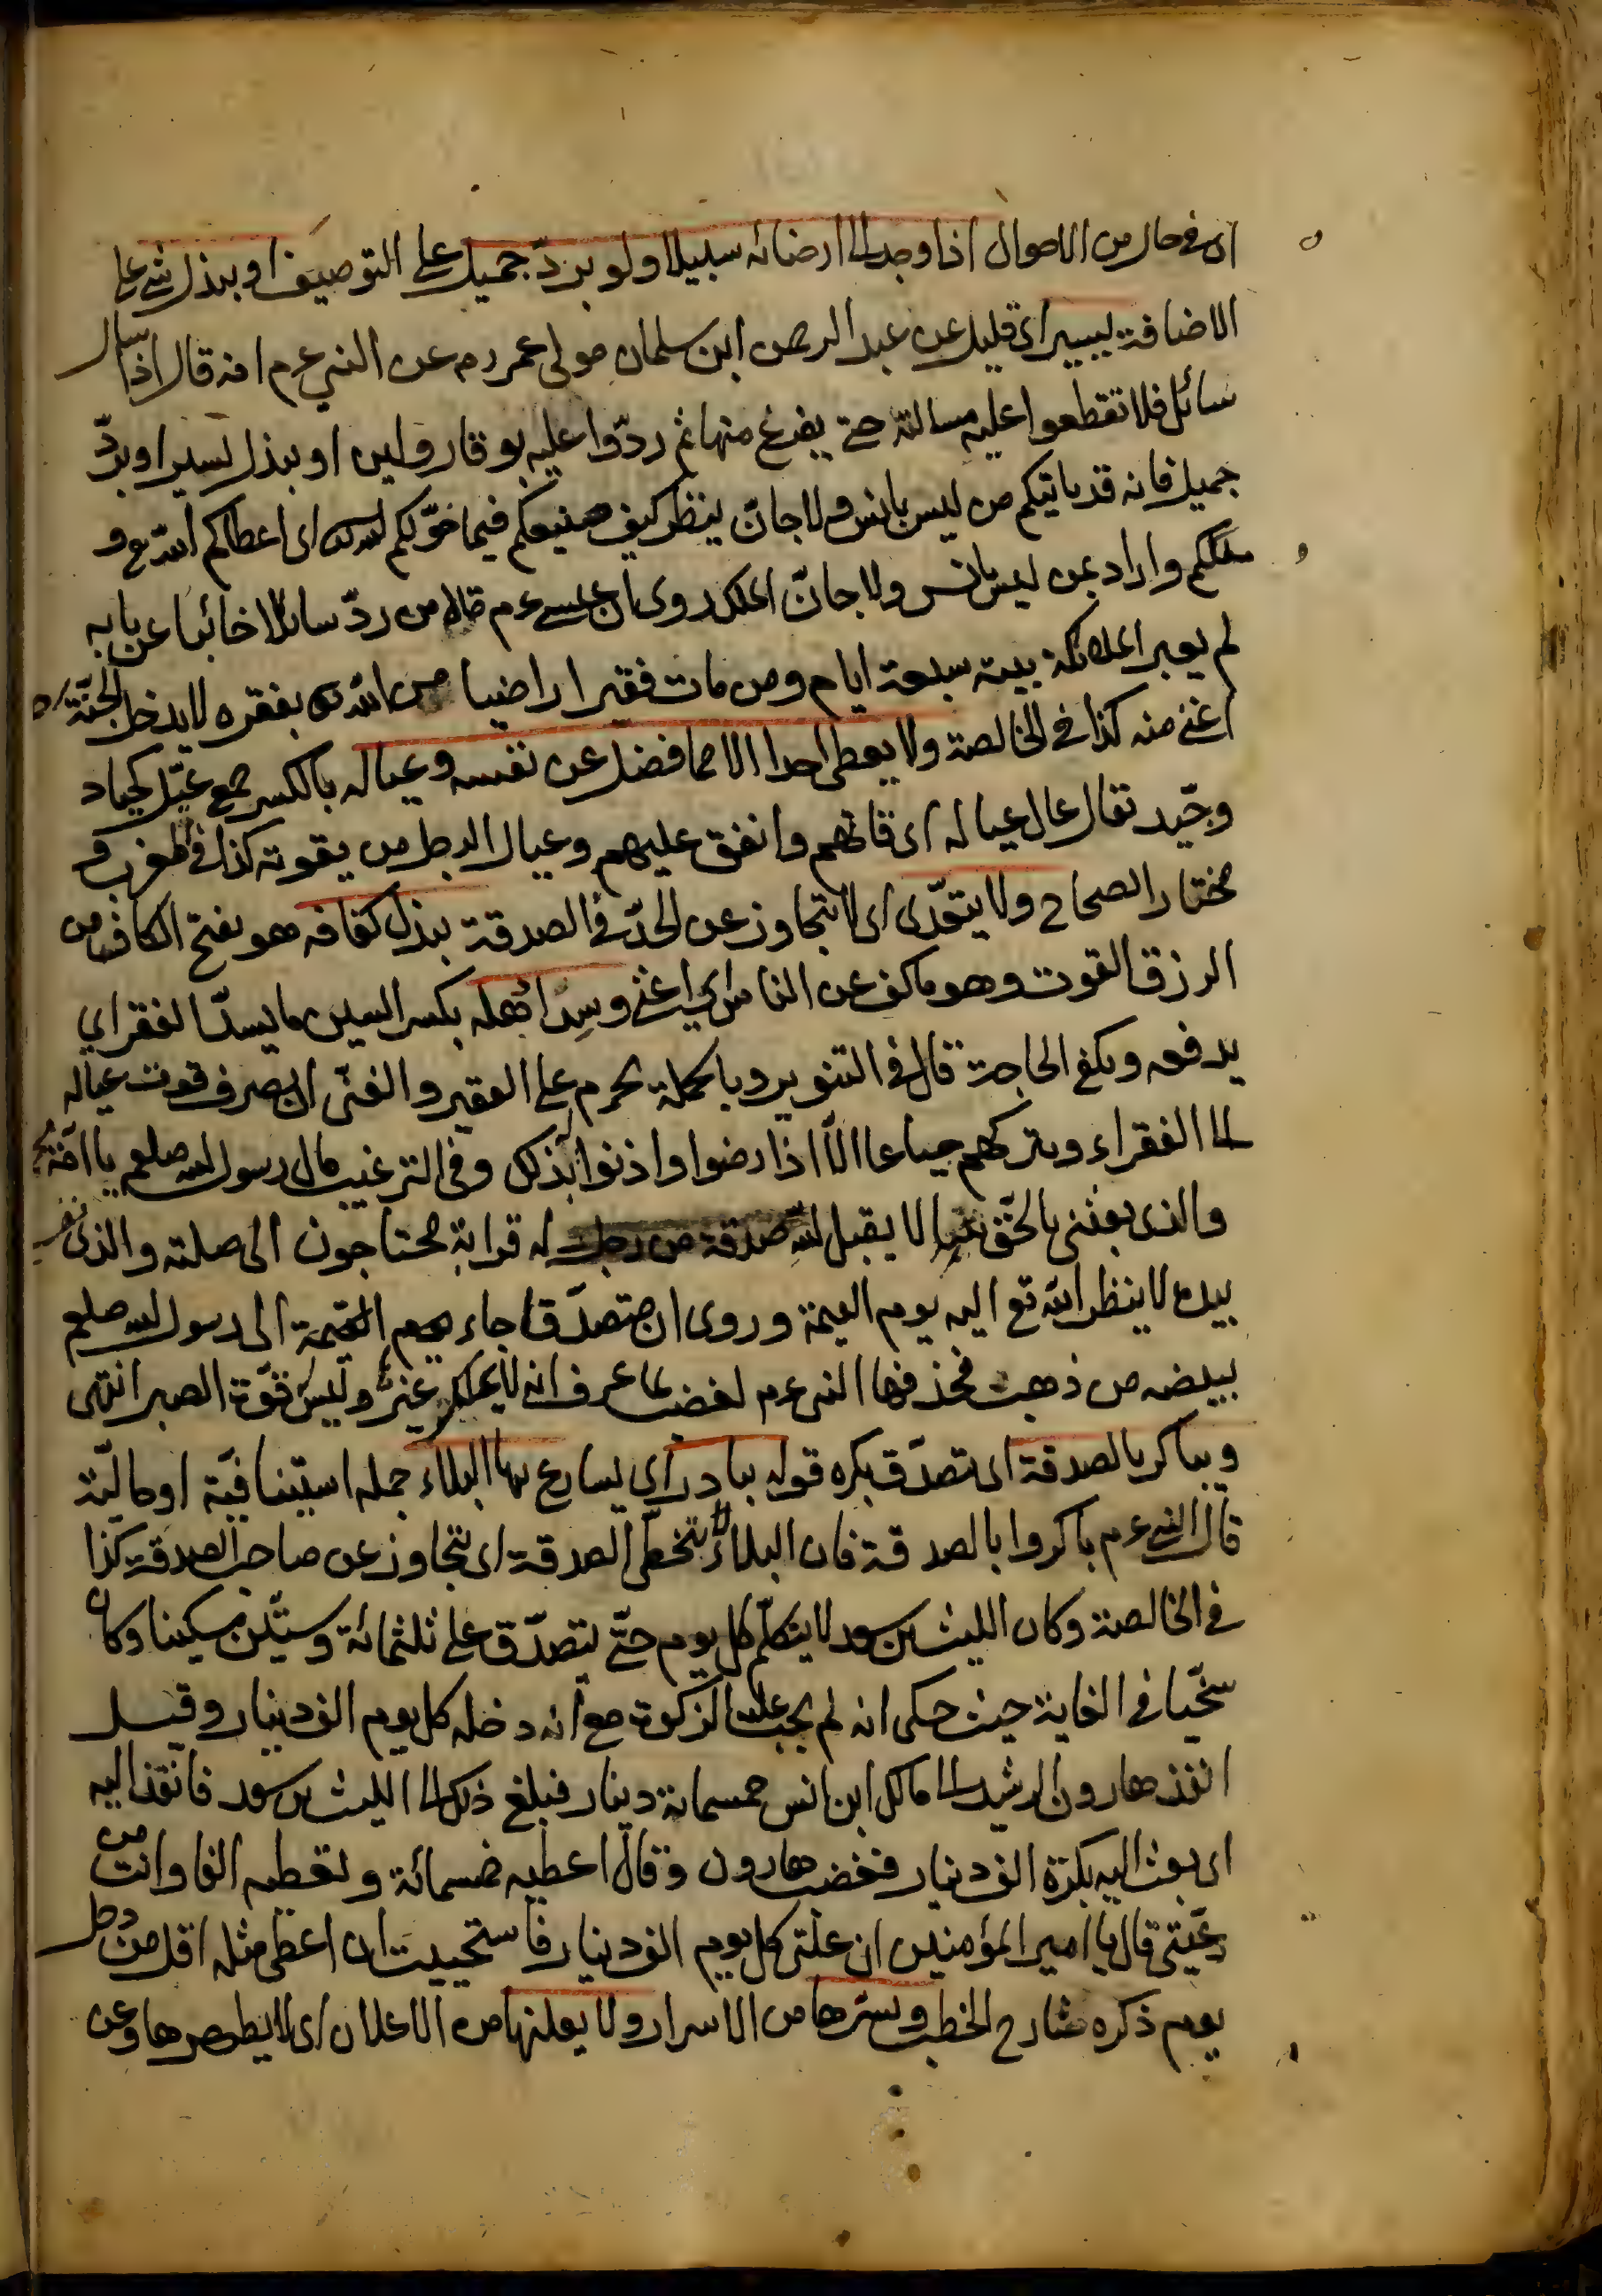 اى فى حال من الاحوال اذا وجد الى ارضائه سبيلا ولو بردّ جميل على التوصيف او ببذل شئ على
الاضافة يسير اى قليل عن عبد الرحمن ابن سلمان مولى عمر رم عن النبى عم انه قال اذا سال
سائل فلا تقطعوا عليه مسالته حتى يفرغ منها ثم ردّوا عليه بوقار ولين او ببذل يسير او بردّ
جميل فانه قد ياتيكم من ليس بانس ولا جانّ ينظر كيف صنيعكم فيما خوّلكم الله اى اعطاكم الله تع و
ملككم واراد بمن ليس بانس ولا جانّ الملك روى ان عيسى عم قال من ردّ سائلا خائبا عن بابه
لم يعبر الملائكة بيته سبعة ايام ومن مات فقيرا راضيا من الله تع بفقره لا يدخل الجنّة
اغنى منه كذا فى الخالصة ولا يعطى احدا الا مما فضل عن نفسه وعياله بالكسر جمع عيّل كجياد
وجيّد تقال عال عياله اى قاتهم وانفق عليهم وعيال الرجل من يقوته كذا فى المغرب و
مختار الصحاح ولا يتعدّى اى لا يتجاوز عن الحدّ فى الصدقة ببذل كفافه هو بفتح الكاف من
الرزق القوت وهو ما كف عن الناس اى اغنى وسداد اهله بكسر السين ما يسدّ الفقر اى
يدفعه ويكفى الحاجة قال فى التنوير وبالجملة يحرم على الفقير والغنى ان يصرف قوت عياله
الى الفقراء ويتركهم جياعا الّا اذا رضوا واذنوا بذلك وفى الترغيب قال رسول الله صلعم يا امّة
والذى بعثنى بالحقّ نبيا لا يقبل الله صدقة من رجل له قرابة محتاجون الى صلته والذى نفسى
بيده لا ينظر الله تع اليه يوم القيمة وروى ان متصدّقا جاء يوم القيمة الى رسول الله صلعم
ببيضه من ذهب فحذفها النبى عم لغضب لما عرف انه لا يملك غيره وليس له قوّة الصبر انتهى
ويباكر بالصدقة اى يتصدّق بكره قوله يبادر اى يسارع بها البلاء جمله استينافيّة او حاليّة
قال النبى عم باكروا بالصدقة فان البلاء لا يتخطّى الصدقة اى يتجاوز عن صاحب الصدقة كذا
فى الخالصة وكان الليث بن سعد لا يتكلّم كل يوم حتّى يتصدّق على ثلثمائة وستّين مسكينا وكان
سخّيا فى الغاية حيث حكى انه لم يجب عليه الزكوة مع انه دخله كل يوم الف دينار وقيل
انفذ هارون الرشيد الى مالك ابن انس خمسمائة دينار فبلغ ذلك الى الليث بن سعد فانفذ اليه
اى بعث اليه بكرة الف دينار فغضب هارون وقال اعطيه خمسمائة وتعطيه الفا وانت من
رعيّتى قال يا امير المؤمنين ان غلّتى كل يوم الف دينار فاستحييت ان اعطى مثله اقل من دخل
يوم ذكره شارح الخطب ويسرّها من الاسرار ولا يعلنها من الاعلان اى لا يظهرها وعن